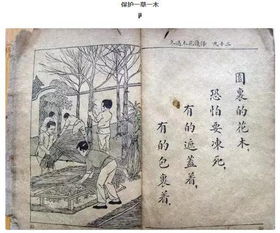 保护一草一木
二十九 保護花木過冬
園裏的花木，
恐怕要凍死，
有的遮蓋着，
有的包裹着。